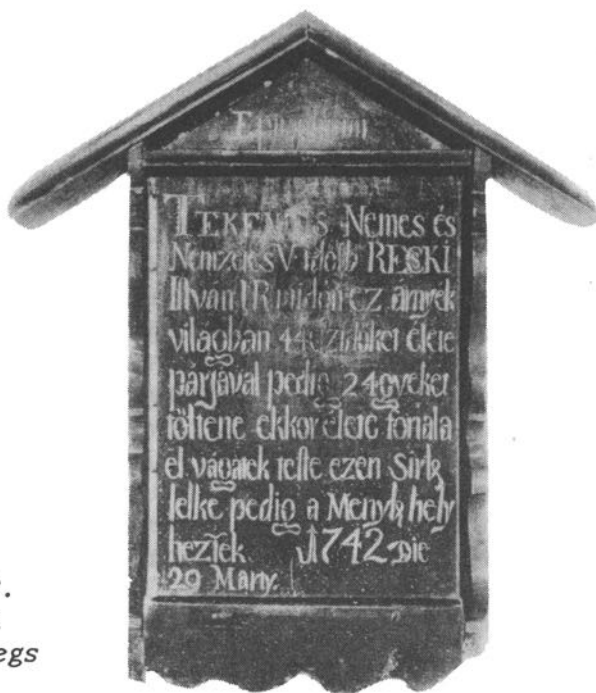 TEKENTES Nemes és
Nemzetes V. RECSKI
Istvan UR midőn ez árnyék
világban 44 esztdüket élete
párjával pedig 24gyeket
töltene ekkor élete fonala
el vágatek teste ezen Sirb
lelke pedig a Menyb hely
heztek 1742 Die
29 Marty.
.
egs